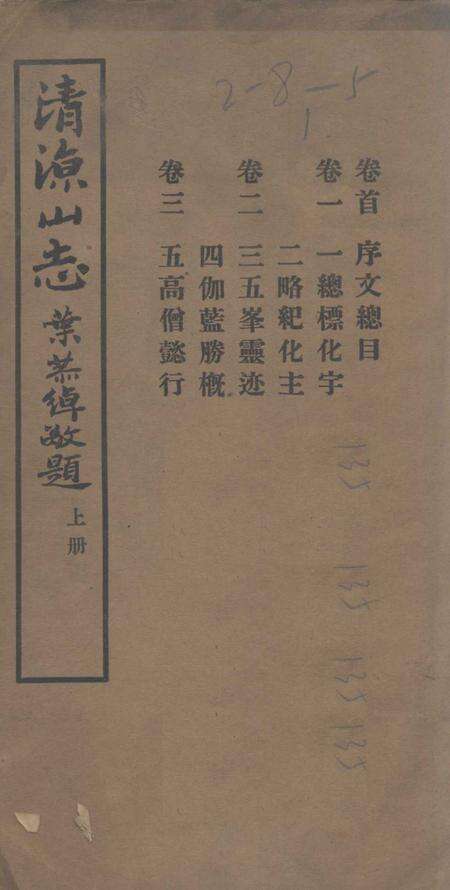 2-8-5
1
卷首 序文總目
卷一 一總標化宇
二略紀化主
卷二 三五峯靈迹
四伽藍勝概
卷三 五高僧懿行
135
135
135
135
清涼山志
葉恭綽敬題
上册